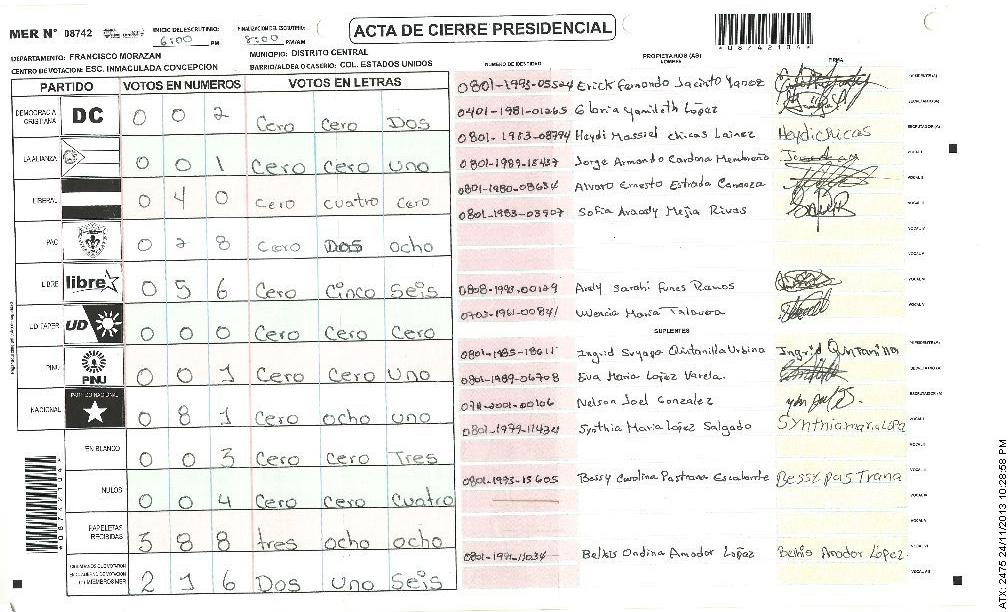 MER N° 08742
INICIO DEL ESCRUTINIO: 6:00 PM
FINALIZACION DEL ESCRUTINIO: 8:00 PM/AM
ACTA DE CIERRE PRESIDENCIAL
08742104
DEPARTAMENTO: FRANCISCO MORAZAN
MUNICIPIO: DISTRITO CENTRAL
CENTRO DE VOTACION: ESC. INMACULADA CONCEPCION
BARRIO/ALDEA O CASERIO: COL. ESTADOS UNIDOS
PARTIDO VOTOS EN NUMEROS VOTOS EN LETRAS
DEMOCRACIA CRISTIANA DC 0 0 2 Cero Cero Dos
LA ALIANZA 0 0 1 Cero Cero Uno
LIBERAL 0 4 0 Cero cuatro Cero
PAC 0 2 8 Cero Dos ocho
LIBRE libre 0 5 6 Cero Cinco Seis
UD FAPER UD 0 0 0 Cero Cero Cero
PINU PINU 0 0 1 Cero Cero Uno
NACIONAL PARTIDO NACIONAL 0 8 1 Cero ocho uno
EN BLANCO 0 0 3 Cero Cero Tres
NULOS 0 0 4 Cero Cero Cuatro
PAPELETAS RECIBIDAS 3 8 8 tres ocho ocho
2 1 6 Dos Uno Seis
NUMERO DE IDENTIDAD PROPIETARIOS (AS) NOMBRE FIRMA
0801-1993-05524 Erick Fernando Jacinto Yanez PRESIDENTE(A)
0401-1981-01265 Gloria Yamileth López SECRETARIO(A)
0801-1983-08794 Heydi Massiel chicas Lainez Heydichicas ESCRUTADOR(A)
0801-1989-18437 Jorge Armando Cardona Membreño VOCAL I
0801-1980-08634 Alvaro Ernesto Estrada Carranza VOCAL II
0801-1983-03907 Sofia Aracely Mejia Rivas VOCAL III
VOCAL IV
VOCAL V
0808-1993-00129 Arely Sarahi Funes Ramos VOCAL VI
0703-1961-00841 Maria Talavera
SUPLENTES
0801-1985-18611 Ingrid Suyapa Quintanilla Urbina Ingrid Quintanilla PRESIDENTE(A)
0801-1989-06708 Eva Maria López Varela. SECRETARIO(A)
-2001-00106 Nelson Joel Gonzalez ESCRUTADOR(A)
0801-1979-11434 Synthia Maria López Salgado Synthiamaria LOPe VOCAL I
VOCAL II
0801-1993-15605 Bessy Carolina Pastrana Escalante Bessy pastrana VOCAL III
VOCAL IV
VOCAL V
0801-1991-11034 Belkis Ondina Amador López Belkis Amador López. VOCAL VI
VOCAL VII
08742104
ATX: 2475 24/11/2013 10:28:58 PM